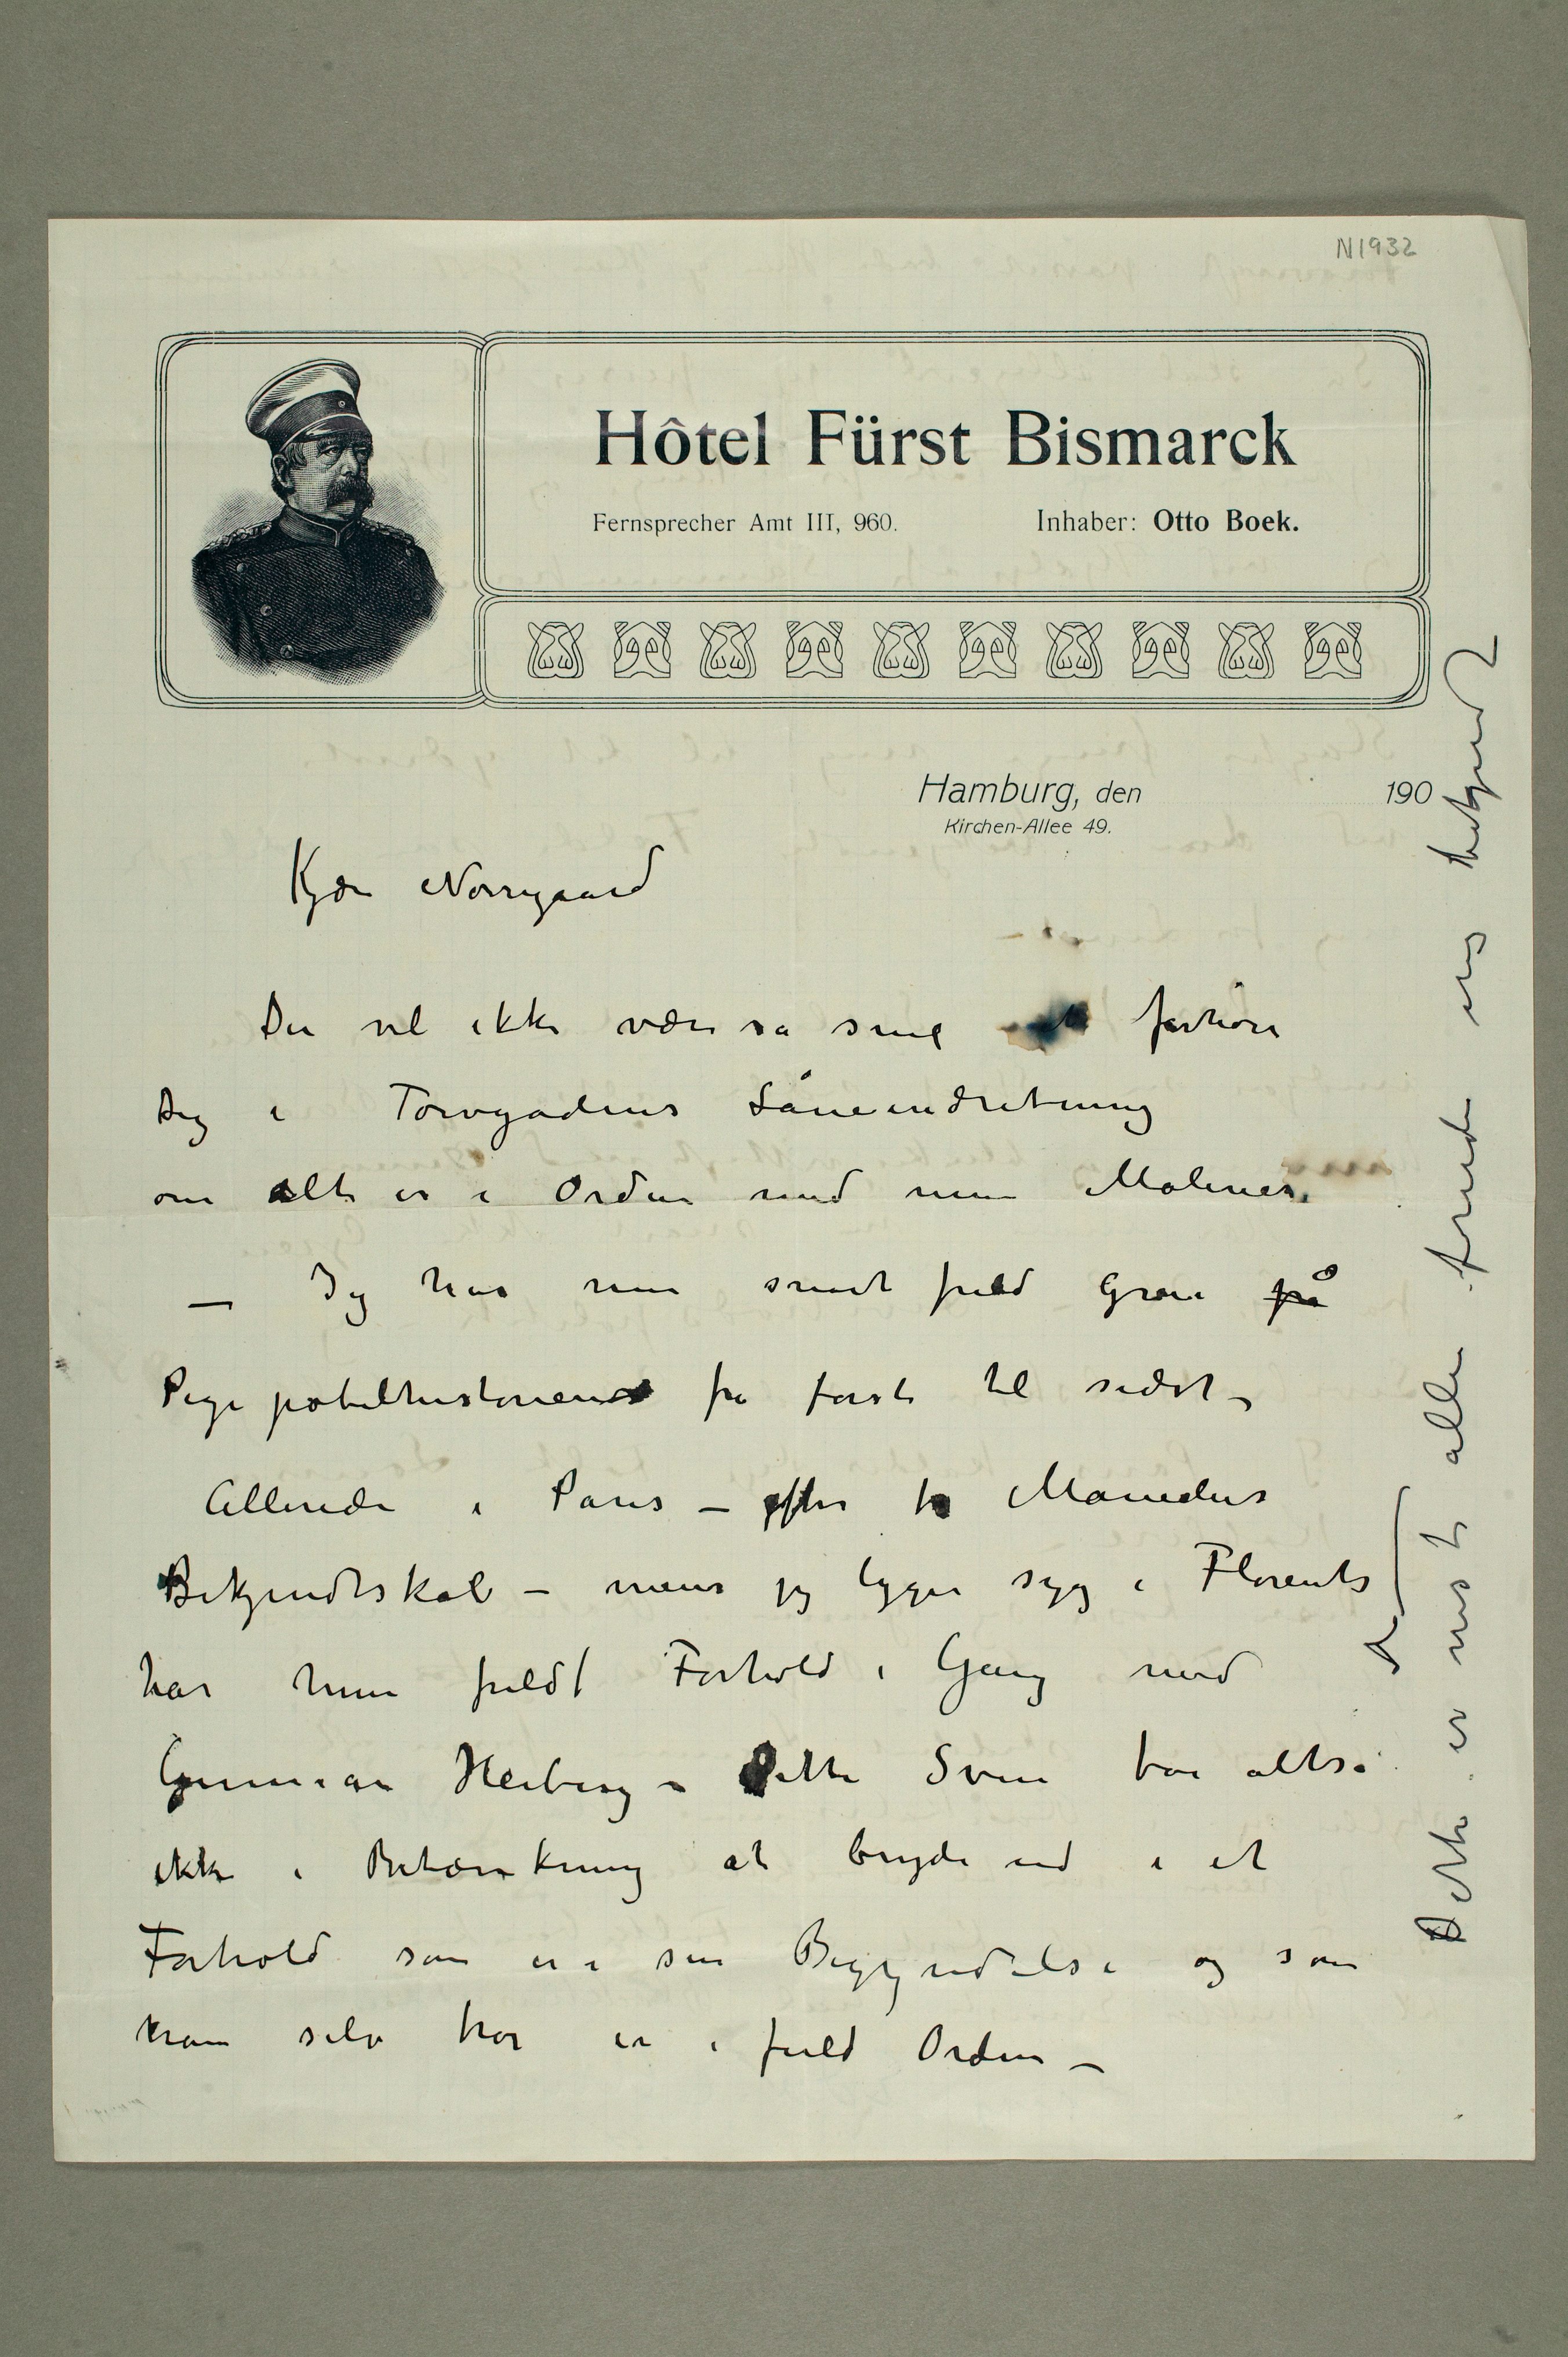 N1932
Hôtel Fürst Bismarck
Fernsprecher Amt III, 960. Inhaber: Otto Boek.
Hamburg, den 190
Kirchen-Allee 49.
Kjære Nørregaard
Du vil ikke være så snil at forhøre
Dig i Torvgadens Låneindretning
om alt er i Orden med mine Malerier.
– Jeg har nu snart fuld Grei på
Pigepøbelhistorien fra først til sidst –
Allerede i Paris – efter to Måneders
Bekjendtskab – mens jeg ligger syg i Florents
har hun fuldt Forhold i Gang med
Gunnar Heiberg – Dette Svin tar altså
ikke i Betænkning at bryde ind i et
Forhold som er i sin Begyndelse og som
han selv tror er i fuld Orden –
Dette er nust alle Årede ens bekjend